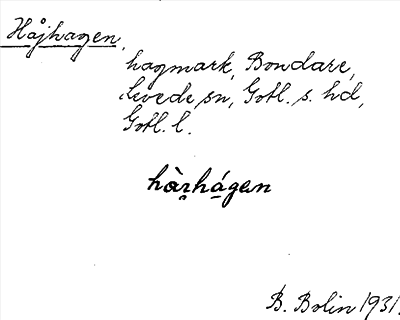 Håjhagen,
hagmark, Bondarve,
Levede sn, Gotl. s. hd,
Gotl. l.
hàʒ̱há̱gen
B. Bolin 1931.